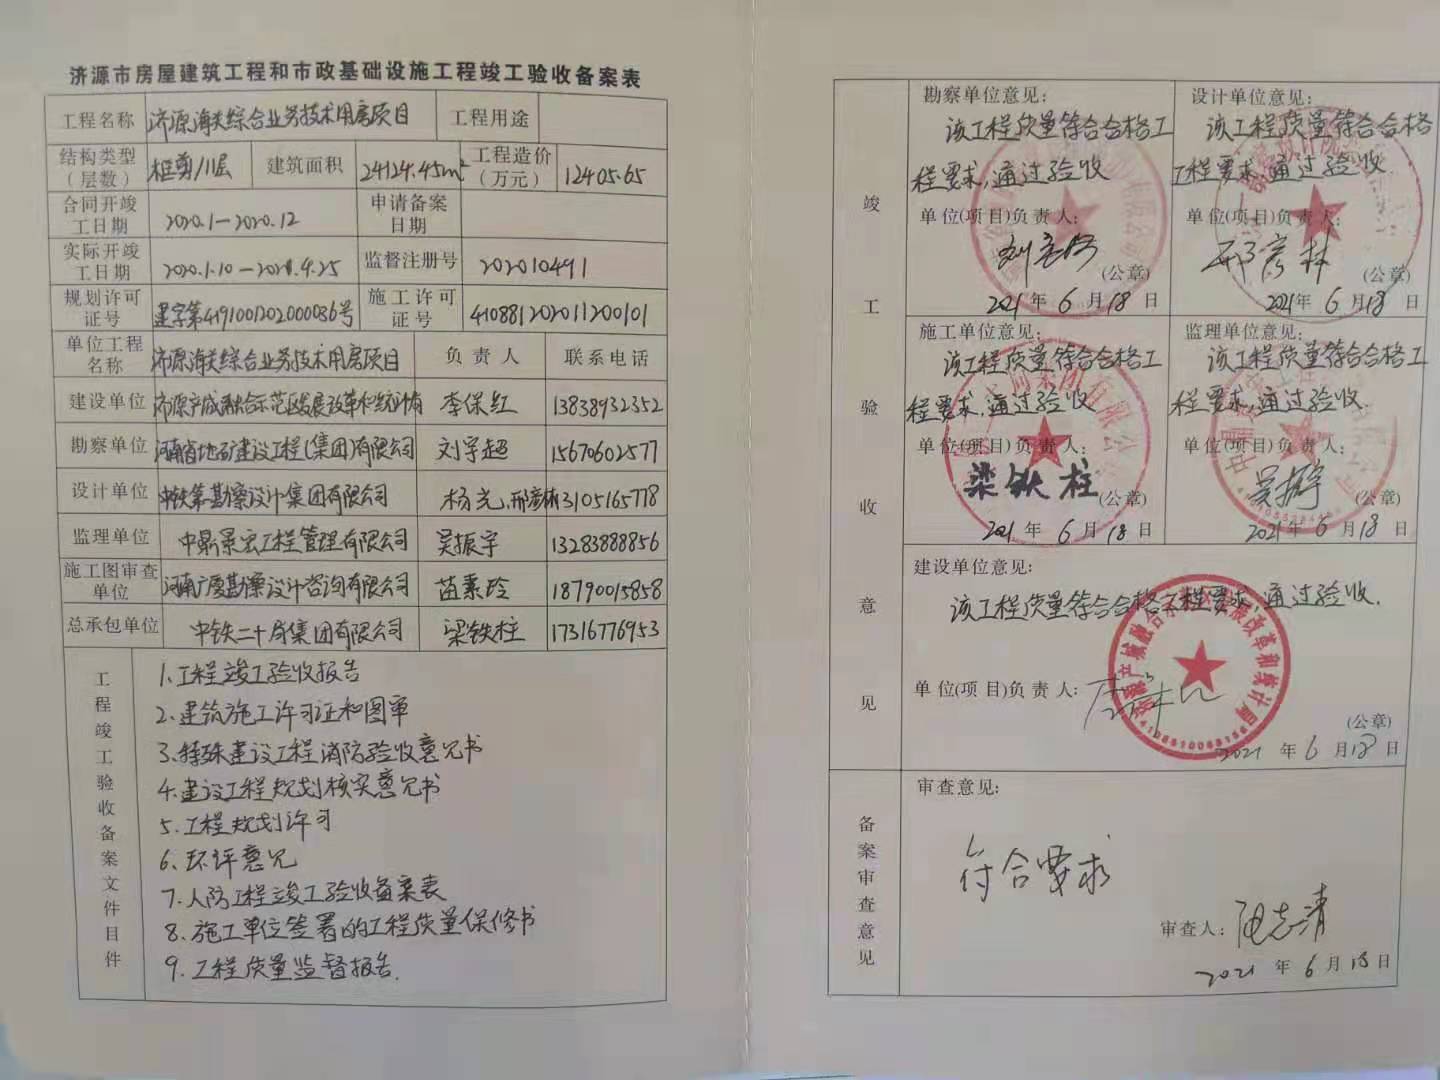 济源市房屋建筑工程和市政基础设施工程竣工验收备案表
工程名称 济源海关综合业务技术用房项目 工程用途
结构类型(层数) 框剪/11层 建筑面积 24124.45m² 工程造价(万元) 12405.65
合同开竣工日期 2020.1—2020.12 申请备案日期
实际开竣工日期 2020.1.10—2021.4.25 监督注册号 202010491
规划许可证号 建字第419100120200036号 施工许可证号 410881202011200101
单位工程名称 济源海关综合业务技术用房项目 负责人 联系电话
建设单位 济源产城融合示范区发展改革和统计局 李保红 13838932352
勘察单位 河南省地矿建设工程(集团)有限公司 刘宇超 15670602577
设计单位 中铁第勘察设计集团有限公司 杨光,邢彦林 13105165778
监理单位 中鼎景宏工程管理有限公司 吴振宇 13283888856
施工图审查单位 河南广厦勘察设计咨询有限公司 苗素玲 18790015858
总承包单位 中铁二十局集团有限公司 梁铁柱 17316776953
工程竣工验收备案文件目件
1.工程竣工验收报告
2.建筑施工许可证和图审
3.特殊建设工程消防验收意见书
4.建设工程规划核实意见书
5.工程规划许可
6.环评意见
7.人防工程竣工验收备案表
8.施工单位签署的工程质量保修书
9.工程质量监督报告.
竣工验收意见
勘察单位意见:
该工程质量符合合格工
程要求,通过验收
单位(项目)负责人:
(公章)
2021年6月18日
设计单位意见:
该工程质量符合合格
工程要求,通过验收
单位(项目)负责人:
邢彦林
(公章)
2021年6月18日
施工单位意见:
该工程质量符合合格工
程要求,通过验收
单位(项目)负责人:
梁铁柱
(公章)
2021年6月18日
监理单位意见:
该工程质量符合合格工
程要求,通过验收.
单位(项目)负责人:
吴振宇
(公章)
2021年6月18日
建设单位意见:
该工程质量符合合格工程要求,通过验收.
单位(项目)负责人:
(公章)
2021年6月18日
备案审查意见
审查意见:
符合要求
审查人:
2021年6月18日